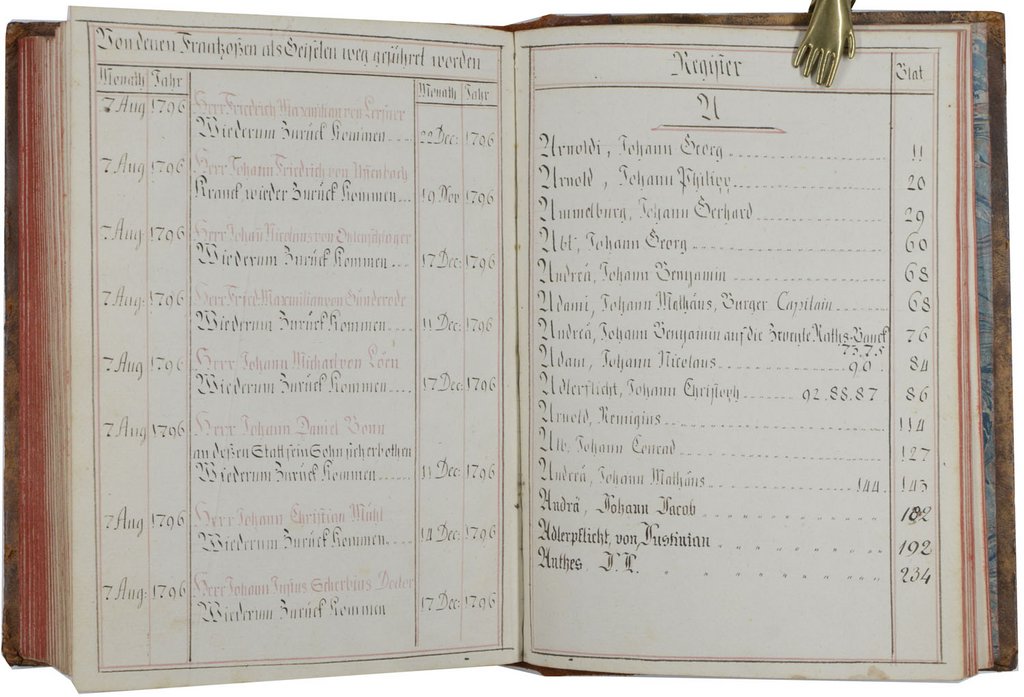 Von denen Frantzoßen als Geißlen weg geführet worden
Monath Jahr Monath Jahr
7 Aug 1796 Herr Friedrich Maximilian von Lersner
Wiederum Zurück Kommen 22 Dec: 1796
7 Aug 1796 Herr Johann Friedrich von
Kranck wieder Zurück Kommen 19 Nov 1796
7 Aug: 1796 Herr Johan Nicolaus von Ohlenschlager
Wiederum Zurück Kommen 17 Dec: 1796
7 Aug: 1796 Herr Fried: Maxmilian von Günderode
Wiederum Zurück Kommen 11 Dec: 1796
7 Aug 1796 Herr Johann Michael von Löen
Wiederum Zurück Kommen 17 Dec: 1796
7 Aug 1796 Herr Johann Daniel Bonn
an deßen Statt sein Sohn sich erbothen
Wiederum Zurück Kommen 11 Dec: 1796
7 Aug 1796 Herr Johann Christian Mühl
Wiederum Zurück Kommen 14 Dec: 1796
7 Aug: 1796 Herr Johann Justus Scherbius Docter
Wiederum Zurück Kommen 17 Dec: 1796
Register Blat
A
Arnoldi, Johann Georg 11
Arnold, Johann Philipp 20
Ammelburg, Johann Gerhard 29
Abt, Johann Georg 60
Andreä, Johann Benjamin 68
Adami, Johann Mathäus, Burger Capitain 68
Andreä, Johann Benjamin auf die Zweyte Raths-Banck 76
73.75
Adam, Johann Nicolaus 90. 84
Adlerflicht, Johann Christoph 92.88.87 86
Arnold, Remigius 114
Alb. Johann Conrad 127
Andreä, Johann Mathäus 144. 143
Andrä, Johann Jacob 182
Adlerpflicht, von Justinian 192
Anthes 234